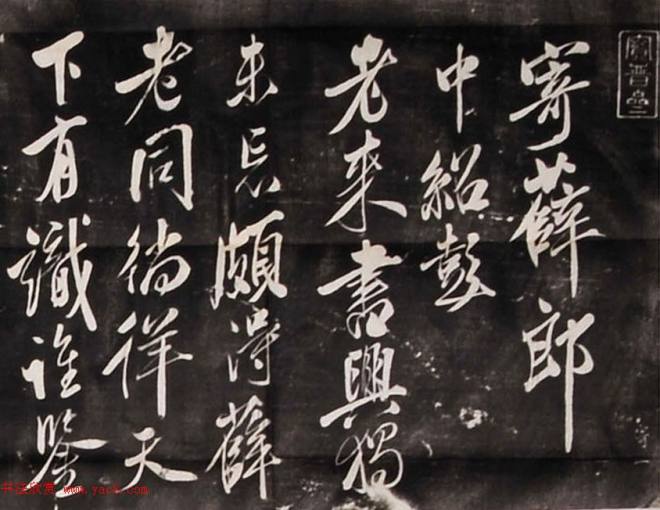 寶晉
寄薛郎
中紹彭
老来書興獨
未忘頗得薛
老同徜徉天
下有識誰鑒
书法欣赏 www.yac8.com